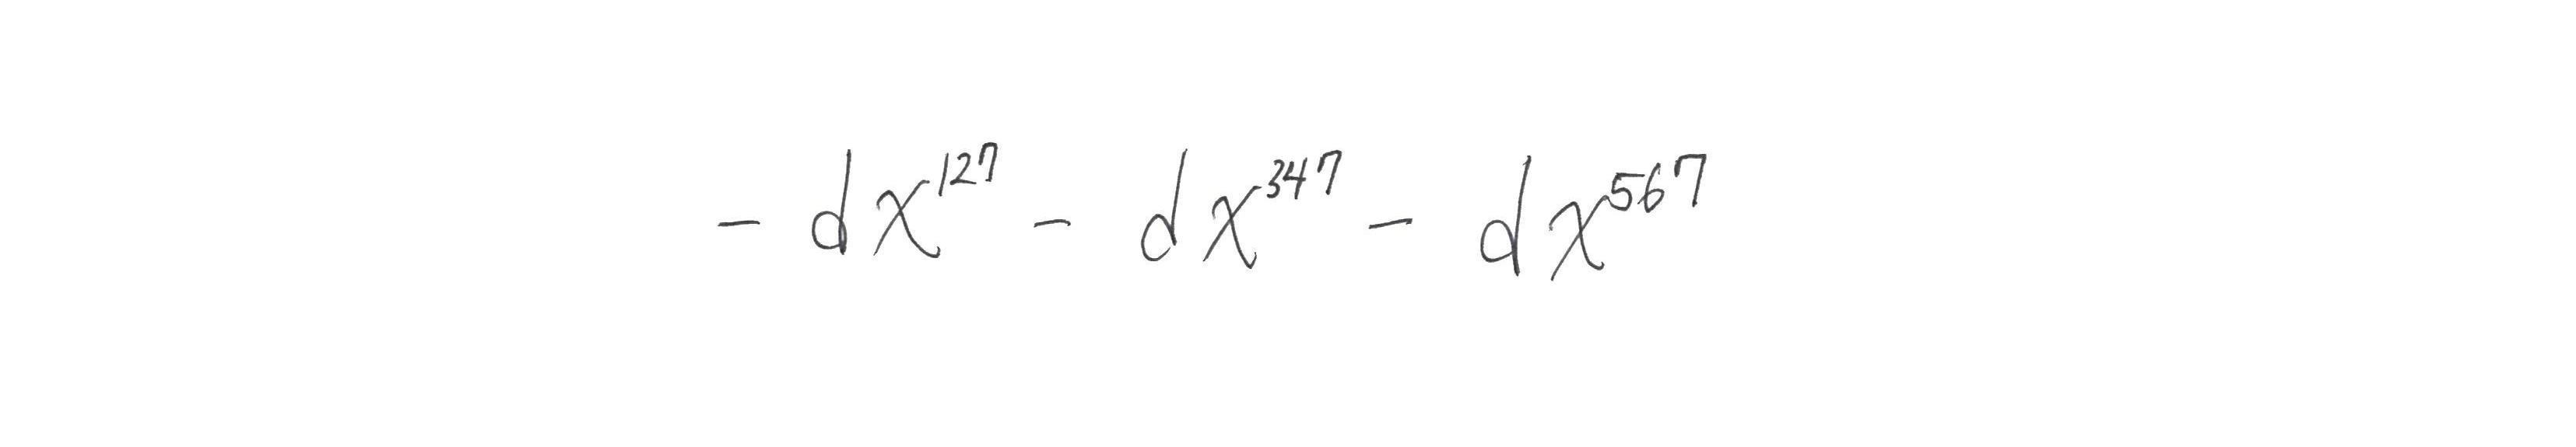 - dx^{127} - dx^{347} - dx^{567}